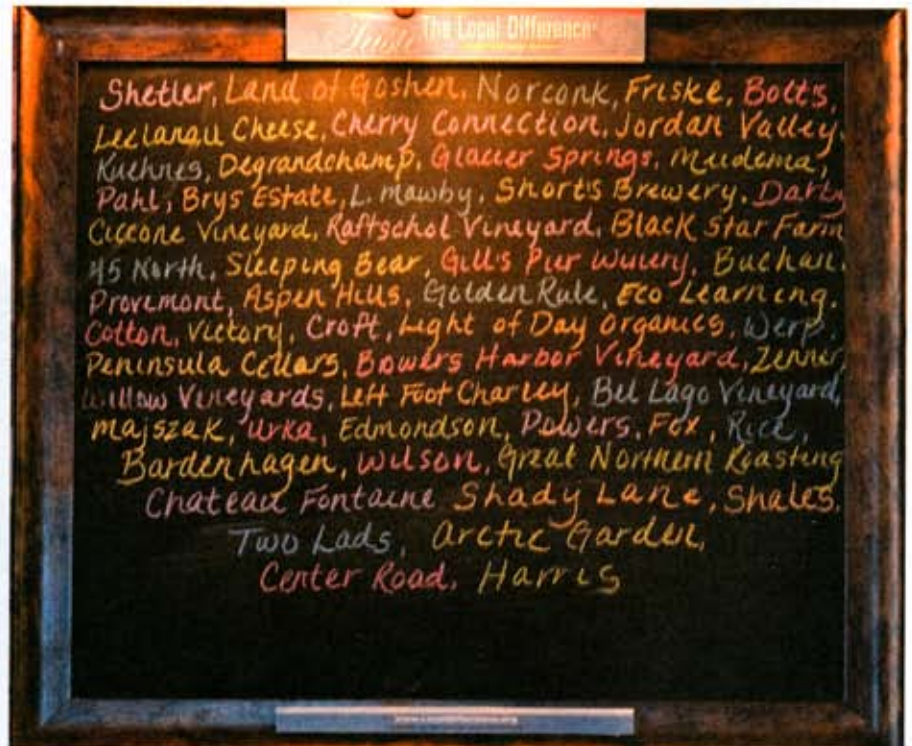 Taste The Local Difference
Shetler, Land of Goshen, Norconk, Friske, Bott's,
Leelanau Cheese, Cherry Connection, Jordan Valley,
Kuehnes, Degrandchamp, Glacier Springs, Muidema,
Pahl, Brys Estate, L. Mawby, Short's Brewery, Darby
Ciccone Vineyard, Raftschol Vineyard, Black Star Farm
45 North, Sleeping Bear, Gill's Pier Winery, Buchan,
Provemont, Aspen Hills, Golden Rule, Eco Learning,
Cotton, Victory, Croft, Light of Day Organics, Werp,
Peninsula Cellars, Bowers Harbor Vineyard, Zenner,
Willow Vineyards, Left Foot Charley, Bel Lago Vineyard,
Majszak, Urka, Edmondson, Powers, Fox, Rice,
Bardenhagen, Wilson, Great Northern Roasting
Chateau Fontaine Shady Lane, Shales,
Two Lads, Arctic Garden,
Center Road, Harris